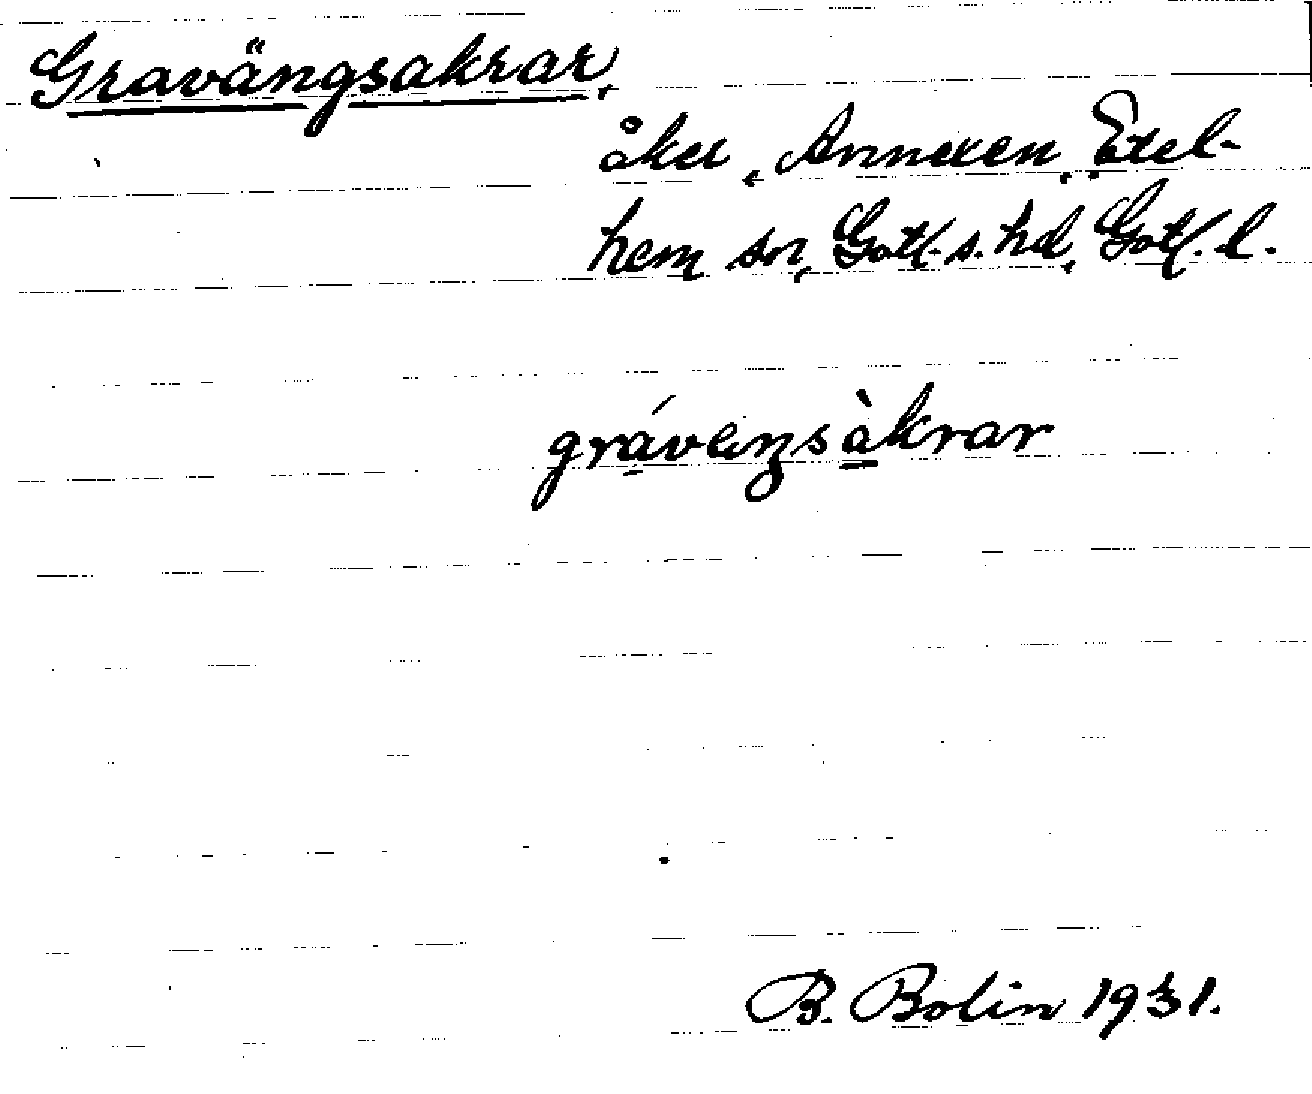 Gravängsakrar,
åker, Annexen, Etel-
hem sn, Gotl. s. hd, Gotl. l.
grávęŋsàkrar
B. Bolin 1931.